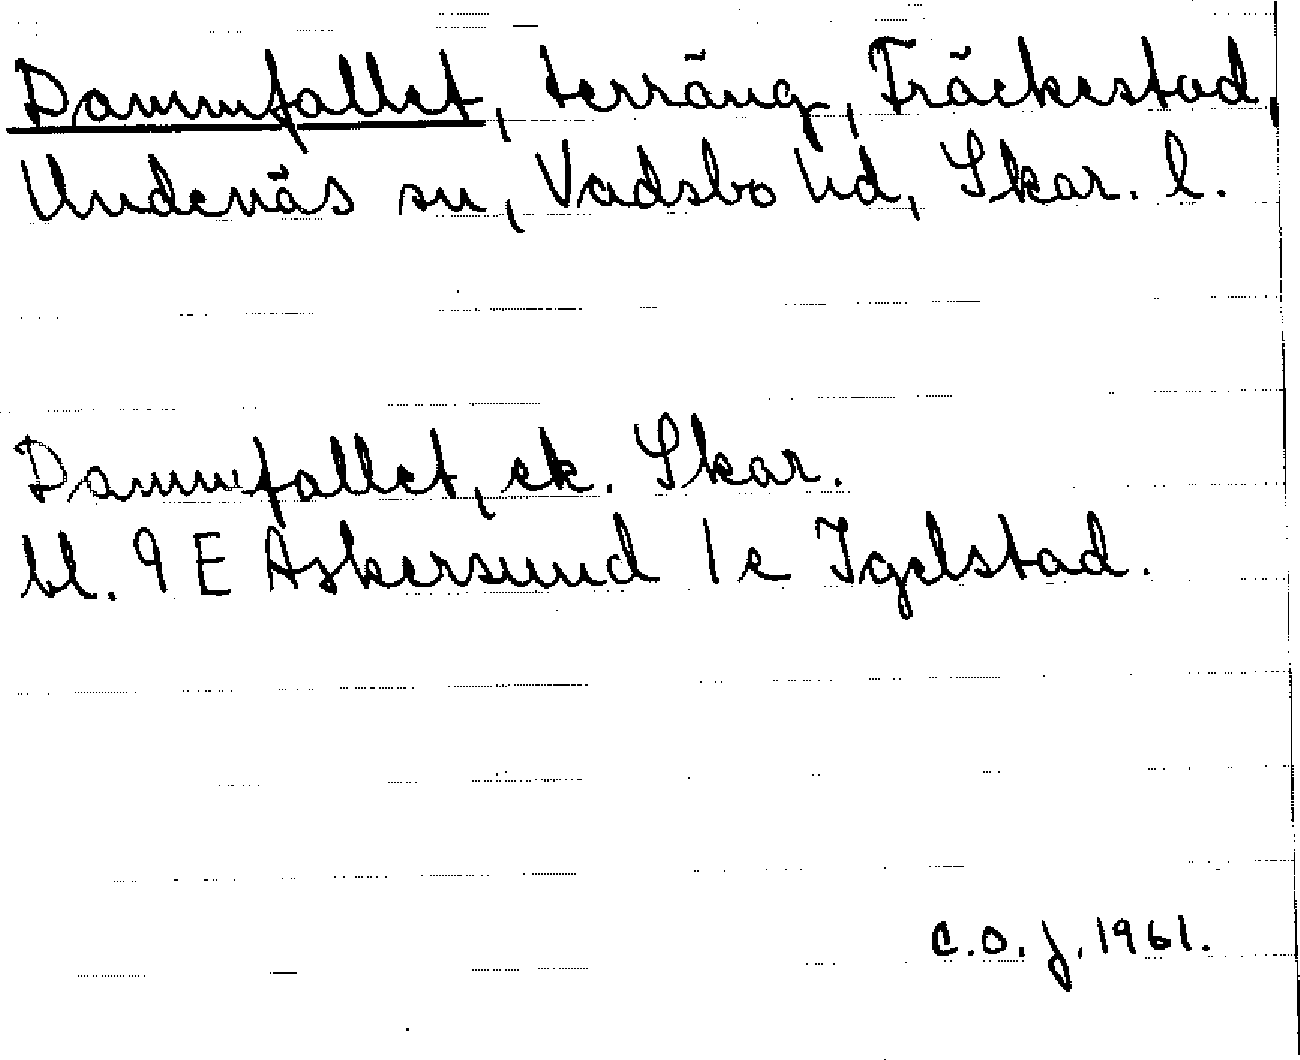 Dammfallet, terräng, Fräckestad,
Undenäs sn, Vadsbo hd, Skar. l.
Dammfallet, ek. Skar.
bl. 9 E Askersund 1 e Igelstad.
C.O.J. 1961.